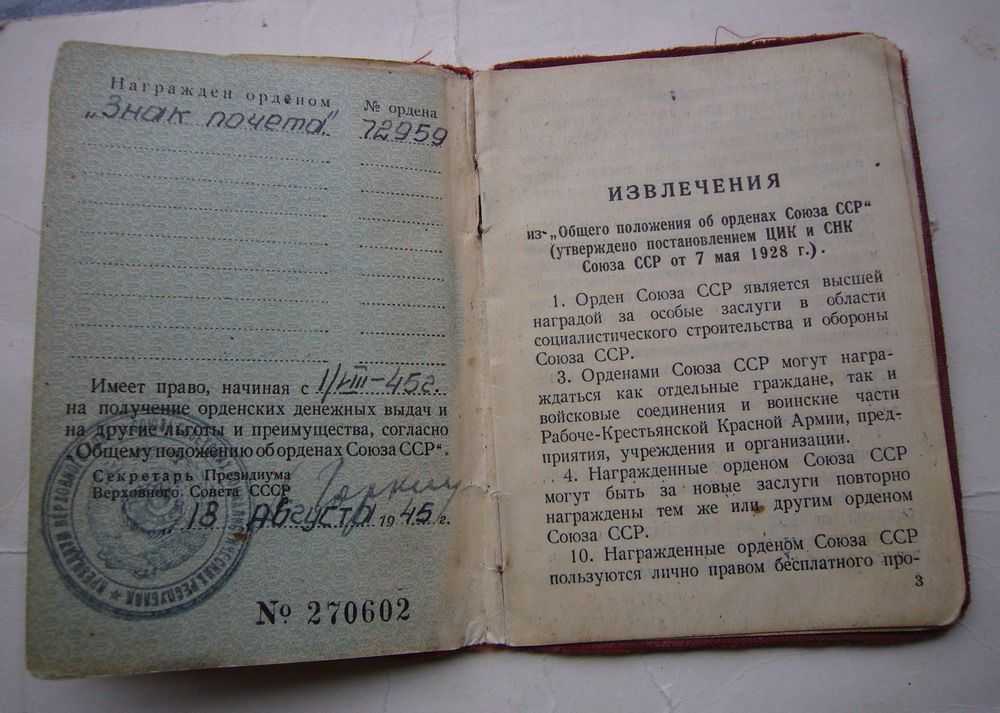 Награжден орденом № ордена
„Знак почета" 72959
Имеет право, начиная с 1/VIII-45г.
на получение орденских денежных выдач и
на другие льготы и преимущества, согласно
„Общему положению об орденах Союза ССР“.
Секретарь Президиума
Верховного Совета СССР
18 Августа 1945 г.
№ 270602
ИЗВЛЕЧЕНИЯ
из „Общего положения об орденах Союза ССР“
(утверждено постановлением ЦИК и СНК
Союза ССР от 7 мая 1928 г.).
1. Орден Союза ССР является высшей
наградой за особые заслуги в области
социалистического строительства и обороны
Союза ССР.
3. Орденами Союза ССР могут награ-
ждаться как отдельные граждане, так и
войсковые соединения и воинские части
Рабоче-Крестьянской Красной Армии, пред-
приятия, учреждения и организации.
4. Награжденные орденом Союза ССР
могут быть за новые заслуги повторно
награждены тем же или другим орденом
Союза ССР.
10. Награжденные орденом Союза ССР
пользуются лично правом бесплатного про-
3